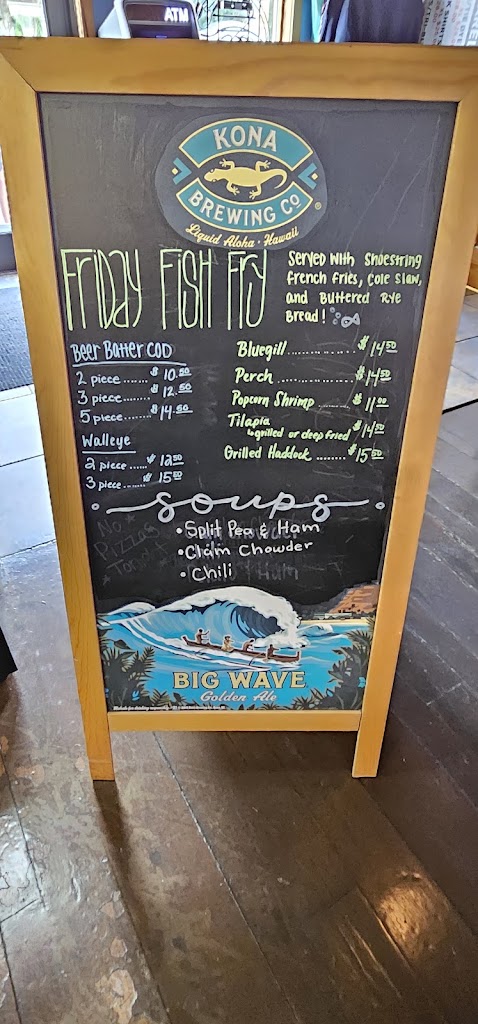 ATM
KONA
BREWING CO
®
Liquid Aloha • Hawaii
FRIDAY FISH FRY
Served with Shoestring
french fries, Cole Slaw,
and Buttered Rye
Bread!
Beer Batter COD
2 piece........$10.50
3 piece........$12.50
5 piece........$14.50
Walleye
2 piece......$12.50
3 piece......$15.50
Bluegill................$14.50
Perch...................$14.50
Popcorn Shrimp..........$11.00
Tilapia
↳grilled or deep fried $14.50
Grilled Haddock ........$15.50
soups
• Split Pea & Ham
• Clam Chowder
• Chili
No
Pizzas
BIG WAVE
Golden Ale